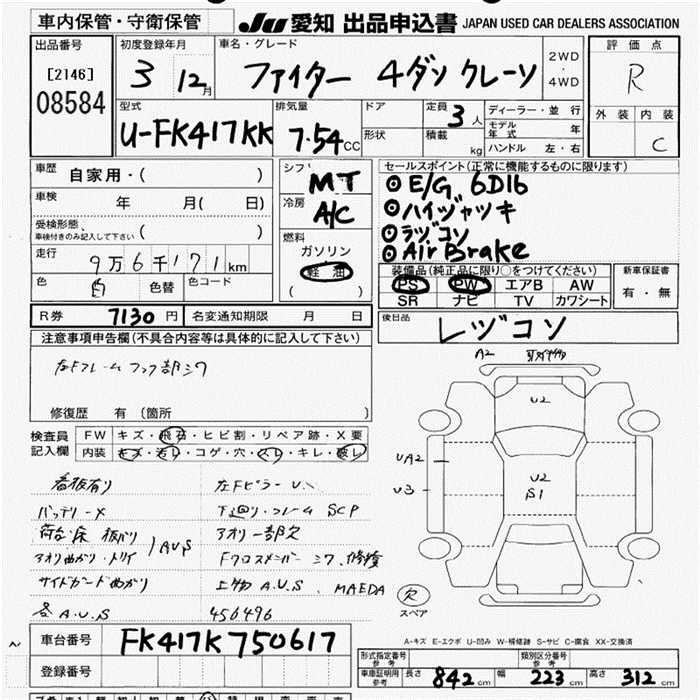 車内保管・守衛保管
JU 愛知 出品申込書 JAPAN USED CAR DEALERS ASSOCIATION
出品番号
[2146]
08584
初度登録年月
3 12月
車名・グレード
ファイター 4ダン クレーン
2WD
・
4WD
評価点
R
外装 内装
C
型式
U-FK417KK
排気量
7.54CC
ドア
形状
定員
3人
積載
kg
ディーラー・並行
モデル年式 年
ハンドル 左・右
車歴
自家用・( )
車検
年 月( 日)
受検形態
車検付きのみ記入して下さい ( )
走行
9万6千171km
色
白
色替
色コード
シフト
MT
冷房
A/C
燃料
ガソリン
軽油
( )
セールスポイント(正常に機能するものに限ります)
◎E/G 6D16
◎ハイジャッキ
◎ラジコン
◎Air Brake
装備品(純正品に限り○をつけてください)
PS PW エアB AW
SR ナビ TV カワシート
新車保証書
有・無
R券 7130円
名変通知期限 月 日
後日品
レヅコン
注意事項申告欄(不具合内容等は具体的に記入して下さい)
左Fフレーム フック部シワ
修復歴 有 (箇所 )
検査員
記入欄
FW キズ・飛石・ヒビ割・リペア跡・X要
内装 キズ・汚レ・コゲ・穴・スレ・キレ・破レ
看板有り
バッテリーメ
荷台・床 板バリ
アオリ曲がり・トリイ
A U S
サイドガード曲がり
各A.U.S
左Fピラー U
下廻り・フレーム SCP
アオリ一部欠
Fクロスメンバー シワ、修復
上物A.U.S、MAEDA
456496
A2
U2
UA2
U3
U2
S1
欠
スペア
A-キズ E-エクボ U-凹み W-補修跡 S-サビ C-腐食 XX-交換済
車台番号
FK417K750617
登録番号
形式指定番号
参考
類別区分番号
参考
車庫証明用
参考
長さ 842cm
幅 223cm
高さ 312cm